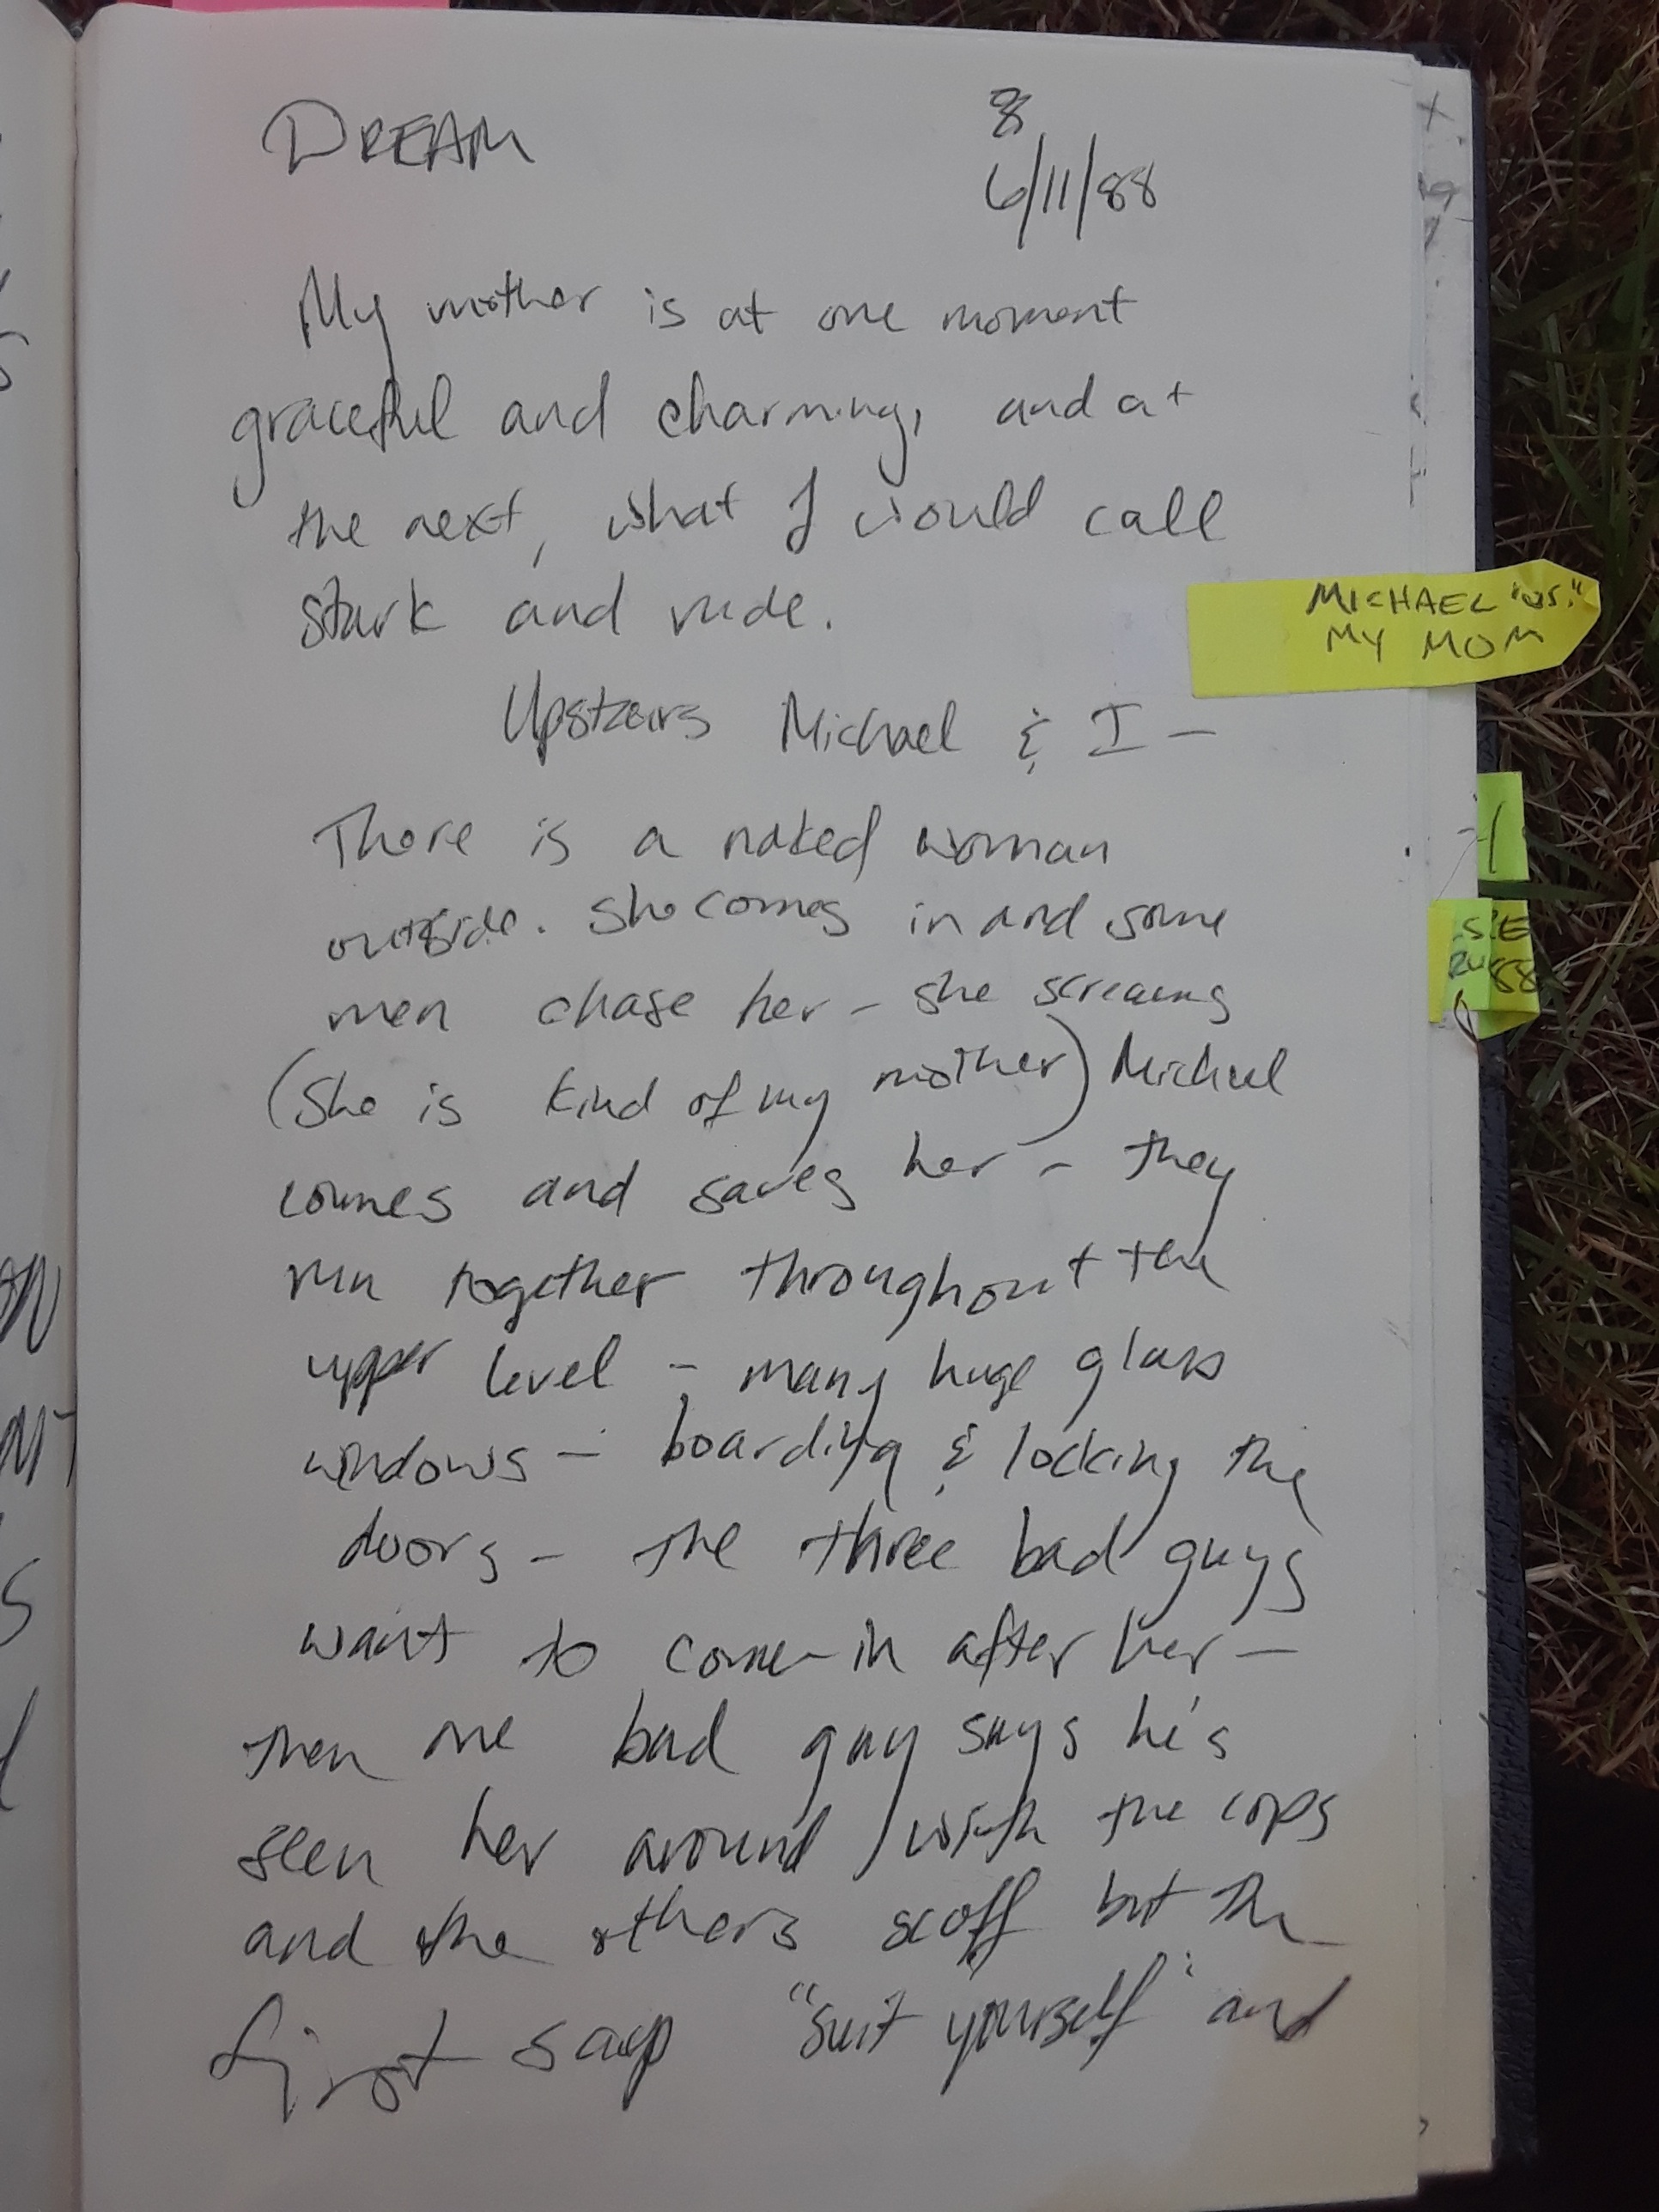 DREAM
8
6/11/88
My mother is at one moment
graceful and charming, and at
the next, what I would call
stark and rude.
MICHAEL "vs."
MY MOM
Upstairs Michael & I —
There is a naked woman
outside. She comes in and some
men chase her - she screams
(she is kind of my mother) Michael
comes and saves her - they
run together throughout the
upper level - many huge glass
windows — boarding & locking the
doors - the three bad guys
want to come in after her —
then one bad guy says he's
seen her around with the cops
and the others scoff but the
first says "suit yourself" and